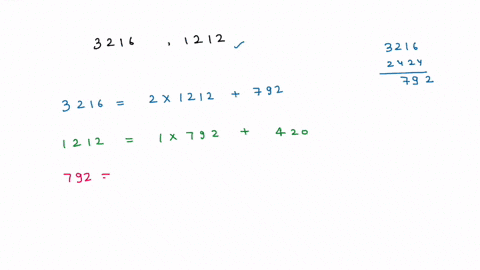 3216 , 1212 ✓
3216
2424
792
3216 = 2 × 1212 + 792
1212 = 1 × 792 + 420
792 =